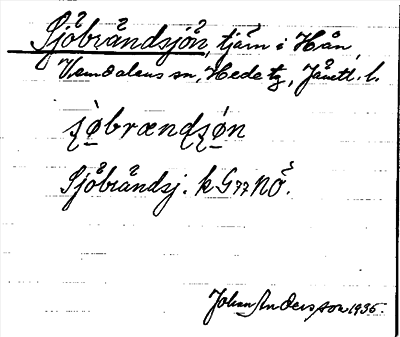 Sjöbrändsjön, tjärn i Hån,
Vemdalens sn, Hede tg, Jämtl. l.
sjöbrændsjön
Sjöbrändsj. k G 77 NÖ.
Johan Andersson 1935.